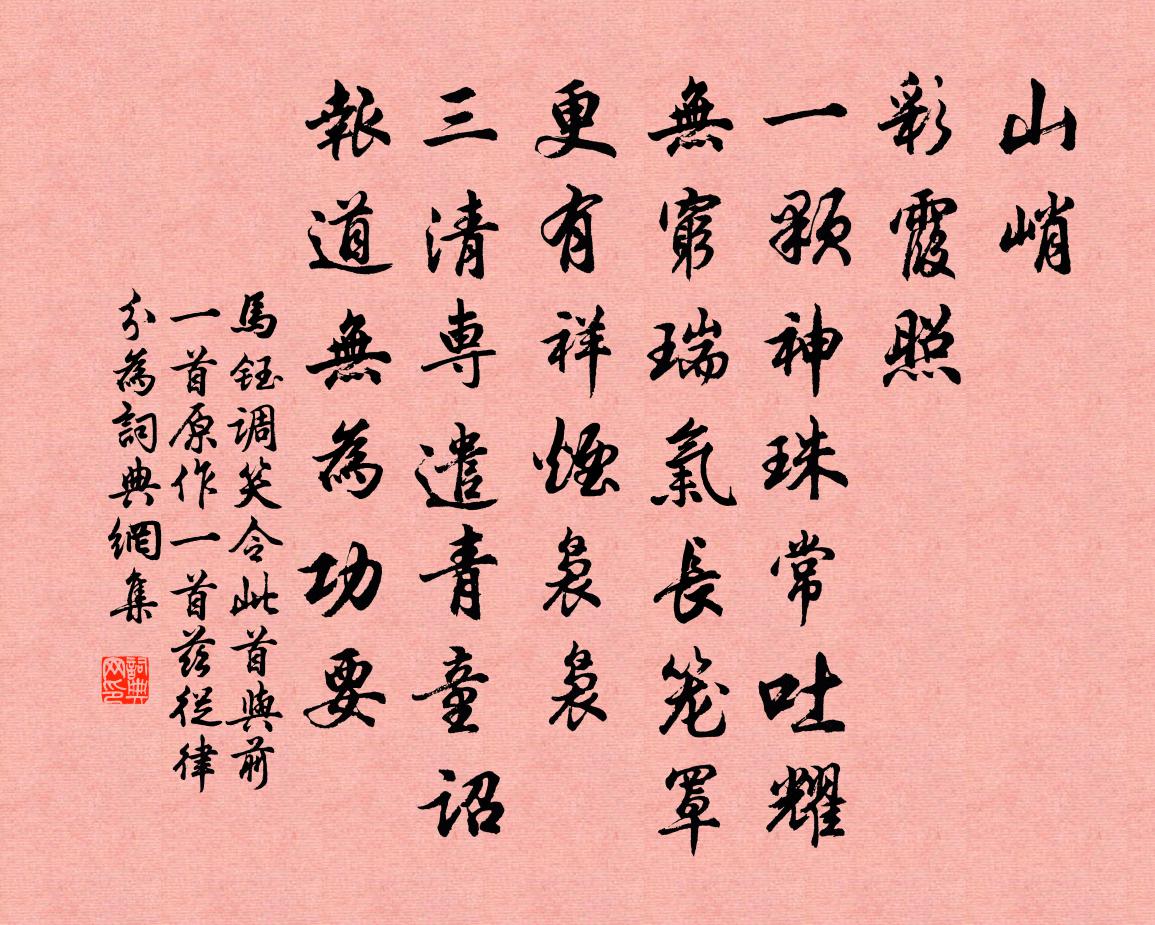 山峭
彩霞照
一顆神珠常吐耀
無窮瑞氣長籠罩
更有祥煙裊裊
三清専遣青童詔
報道無為功要
馬鈺調笑令此首與前
一首原作一首茲從律
分為詞典網集
詞典
网印